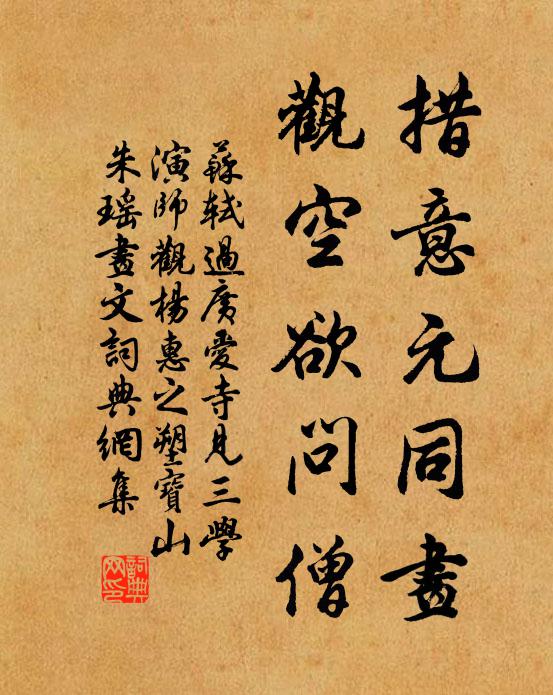 措意元同畫
觀空欲問僧
蘇軾過廣愛寺見三學
演師觀楊惠之塑寶山
朱瑶畫文詞典網集
詞典
网印